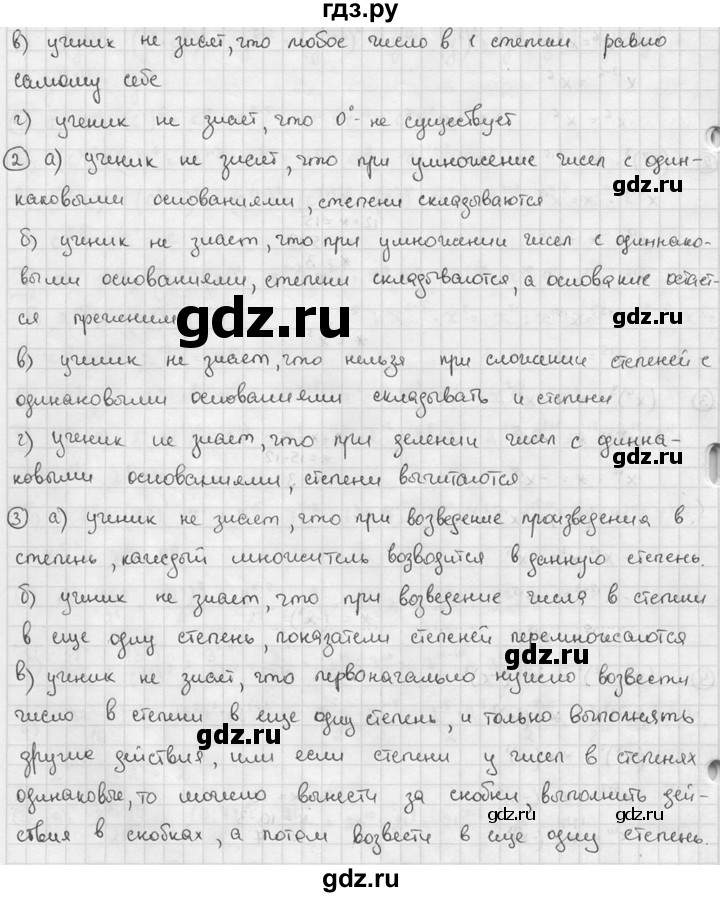 гдз.ру
в) ученик не знает, что любое число в 1 степени равно
самому себе
г) ученик не знает, что 0⁰- не существует
2 а) ученик не знает, что при умножение чисел с один-
каковыми основаниями, степени складываются
gdz.ru
б) ученик не знает, что при умножении чисел с одиннако-
выми основаниями, степени складываются, а основание остает-
ся прежним
gdz.ru
gdz.ru
в) ученик не знает, что нельзя при сложении степеней с
одинаковыми основаниями складывать и степени
г) ученик не знает, что при делении чисел с одинна-
gdz.ru
ковыми основаниями, степени вычитаются
3 а) ученик не знает, что при возведение произведения в
степень, каждый множитель возводится в данную степень.
б) ученик не знает, что при возведение числа в степени
в еще одну степень, показатели степеней перемножаются
gdz.ru
в) ученик не знает, что первоначально нужно возвести
число в степени в еще одну степень, и только выполнять
gdz.ru
другие действия, или если степени у чисел в степенях
одинаковые, то можно вынести за скобки, выполнить дей-
gdz.ru
gdz.ru
ствия в скобках, а потом возвести в еще одну степень.
gdz.ru